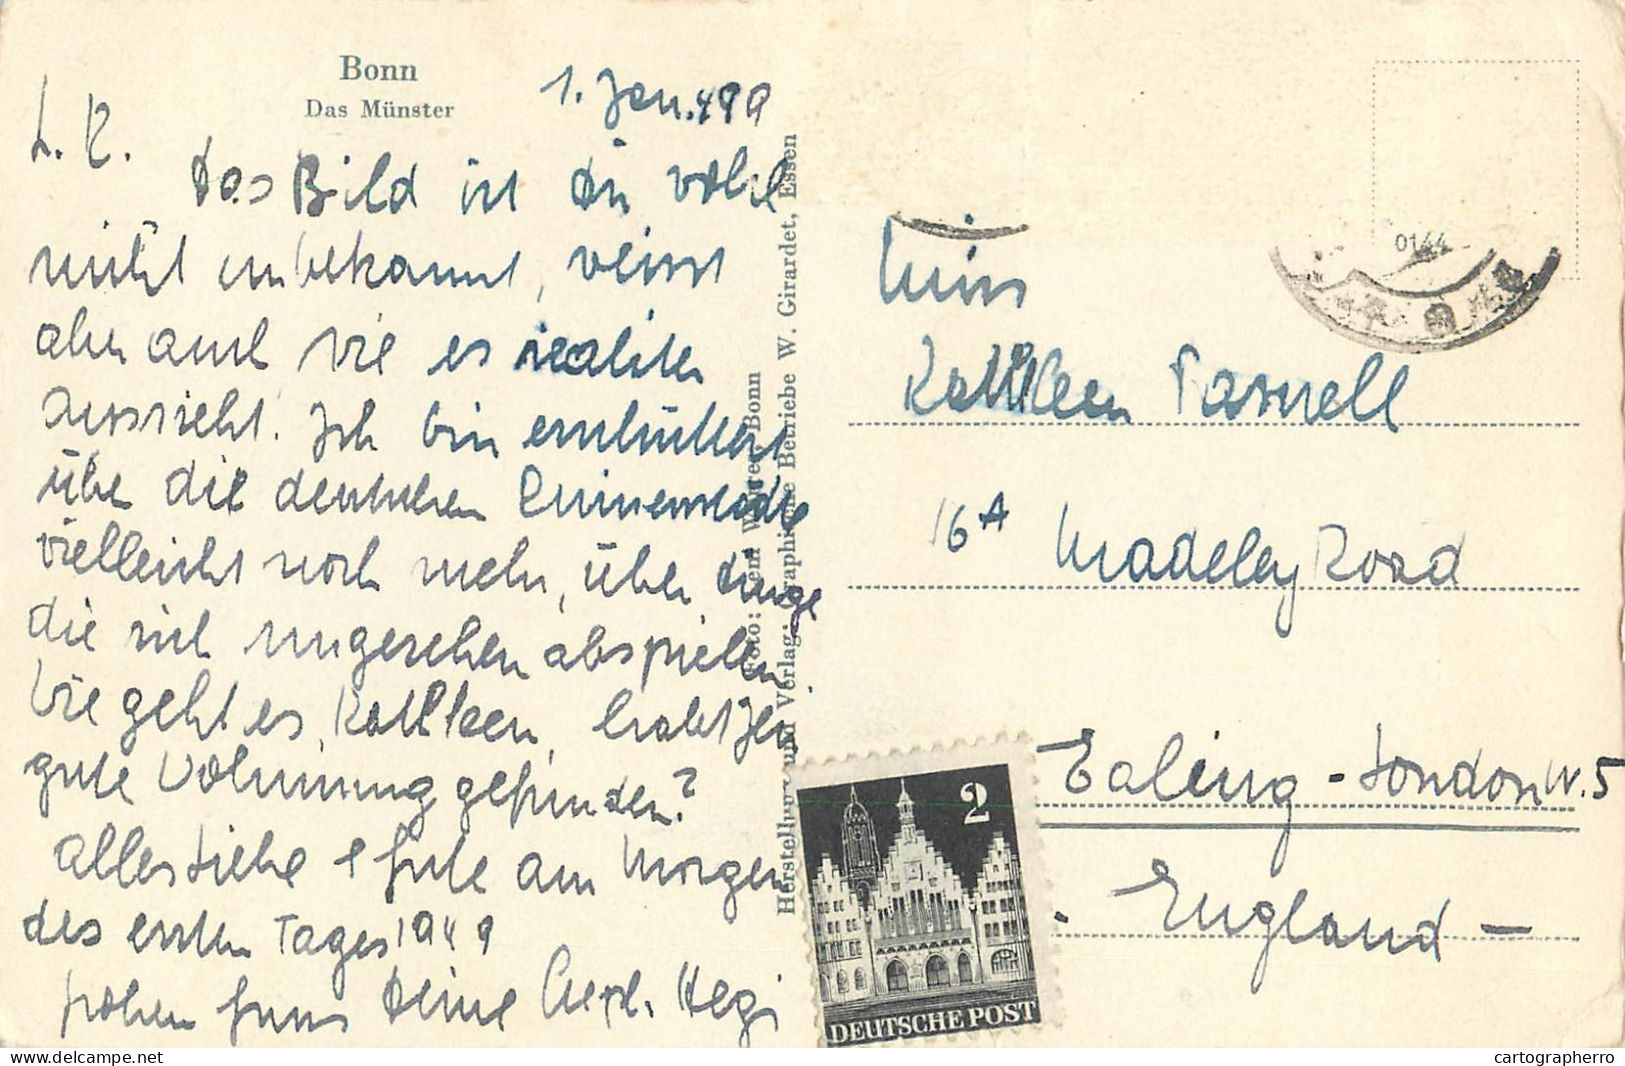 Bonn
Das Münster
1. Jan. 49
L. K.
Das Bild ist Dir wohl
nicht unbekannt, weisst
aber auch wie es realiter
aussieht. Ich bin erschüttert
über die deutschen Ruinenstädte
vielleicht noch mehr, über Dinge
die sich ungesehen abspielen.
Wie geht es, Kathleen, habt Ihr
gute Wohnung gefunden?
Alles Liebe & Gute am Morgen
des ersten Tages 1949
frohen Gruss Deine Hegi
Foto: Bonn
Herstellung und Verlag: Graphische Betriebe W. Girardet, Essen
0144
Miss
Kathleen Parnell
16A Madeley Road
Ealing - London W.5
- England -
2
DEUTSCHE POST
delcampe.net
cartographerro